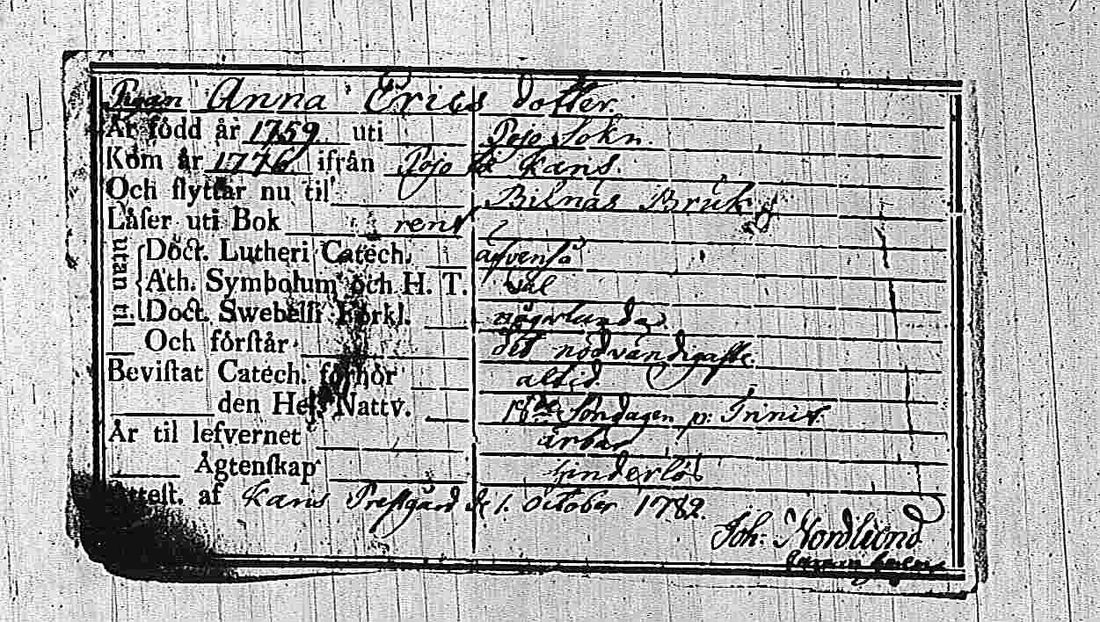 Pigan Anna Erics dotter.
Är född år 1759 uti Pojo Sokn.
Kom år 1776 ifrån Pojo Karis.
Och flyttar nu til Bilnäs Bruk
Låſer uti Bok rent
utan til Doct. Lutheri Catech. äfvenså
Ath. Symbolum och H. T. väl
Doct. Swebelii Förkl. någorlunda
Och förſtår det nödvändigaſte.
Beviſtat Catech. förhör altid.
den Hel. Nattv. 18de Söndagen p: Trinit.
Är til lefvernet ärbar
Ågtenſkap hinderlös
Atteſt. af Karis Preſtgård d. 1. October 1782.
Joh: Nordlund